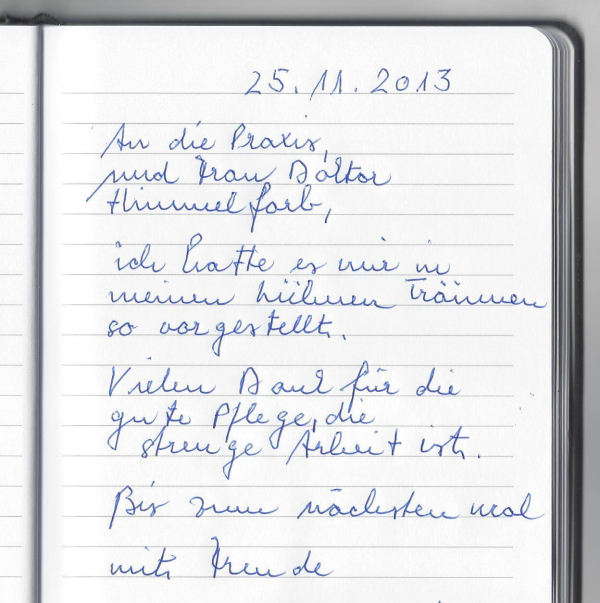 25.11.2013
An die Praxis,
und Frau Doktor
Himmelfarb,
ich hatte es mir in
meinen kühnen Träumen
so vorgestellt.
Vielen Dank für die
gute Pflege, die
strenge Arbeit ist.
Bis zum nächsten mal
mit Freude